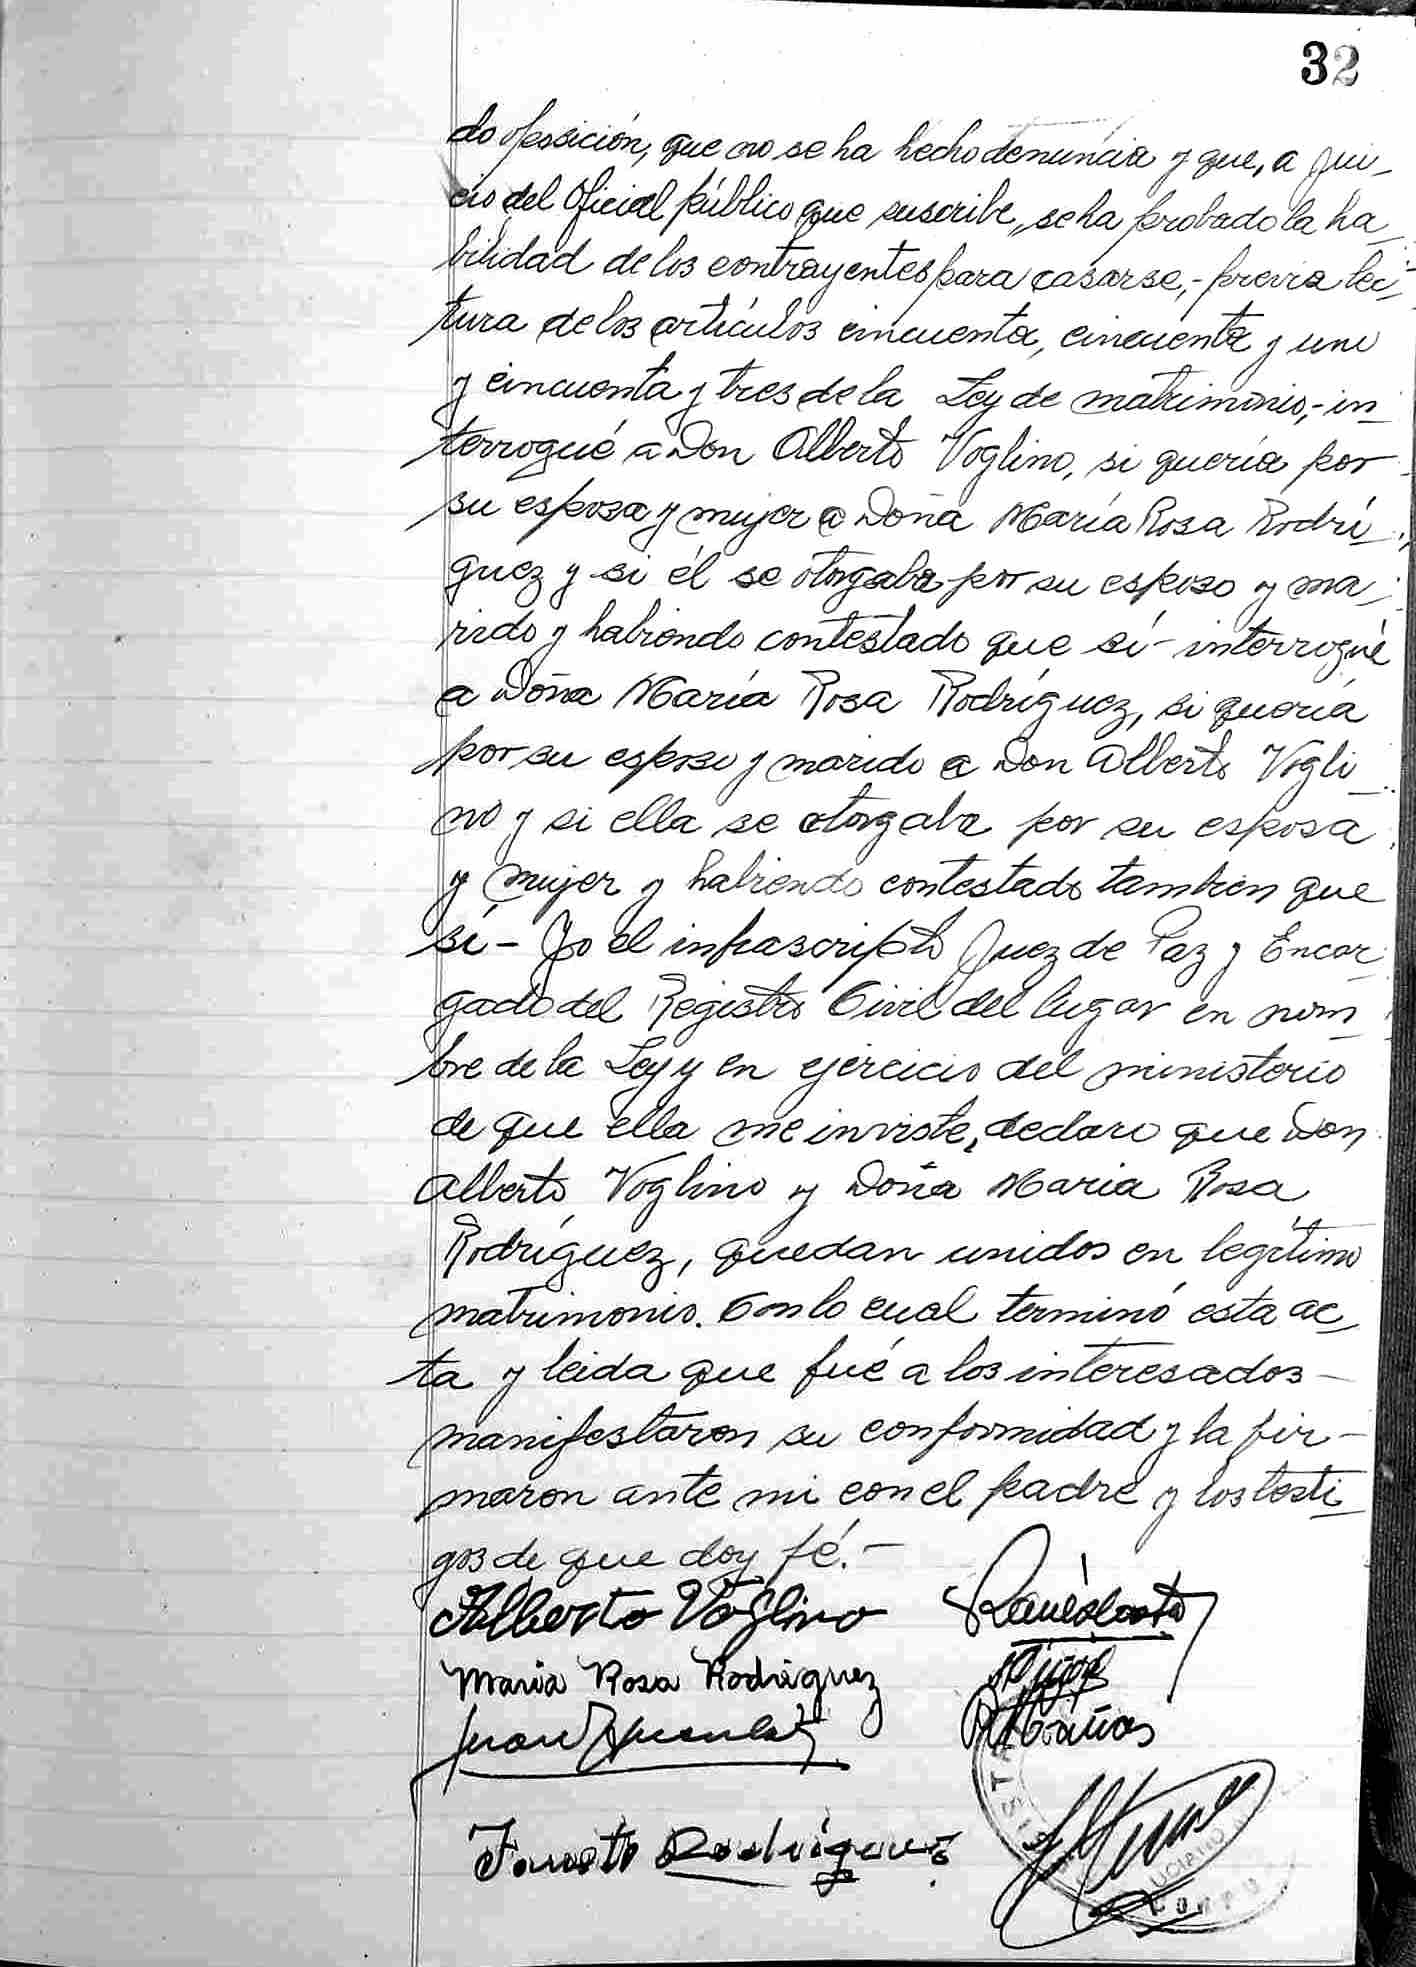 32
do oposición, que no se ha hecho denuncia y que, a jui-
cio del Oficial público que suscribe, se ha probado la ha-
bilidad de los contrayentes para casarse,- previa lec-
tura de los artículos cincuenta, cincuenta y uno
y cincuenta y tres de la Ley de matrimonio,- in-
terrogué a Don Alberto Voglino, si quería por
su esposa y mujer a Doña María Rosa Rodrí-
guez y si él se otorgaba por su esposo y ma-
rido y habiendo contestado que sí- interrogué
a Doña María Rosa Rodríguez, si quería
por su esposo y marido a Don Alberto Vogli-
no y si ella se otorgaba por su esposa
y mujer y habiendo contestado tambien que
sí- Yo el infrascripto Juez de Paz y Encar-
gado del Registro Civil del lugar en nom-
bre de la Ley y en ejercicio del ministerio
de que ella me inviste, declaro que Don
Alberto Voglino y Doña Maria Rosa
Rodríguez, quedan unidos en legítimo
matrimonio. Con lo cual terminó esta ac-
ta y leida que fué a los interesados-
manifestaron su conformidad y la fir-
maron ante mi con el padre y los testi-
gos de que doy fé.-
Alberto Voglino
Maria Rosa Rodriguez
Juan
Fausto Rodriguez